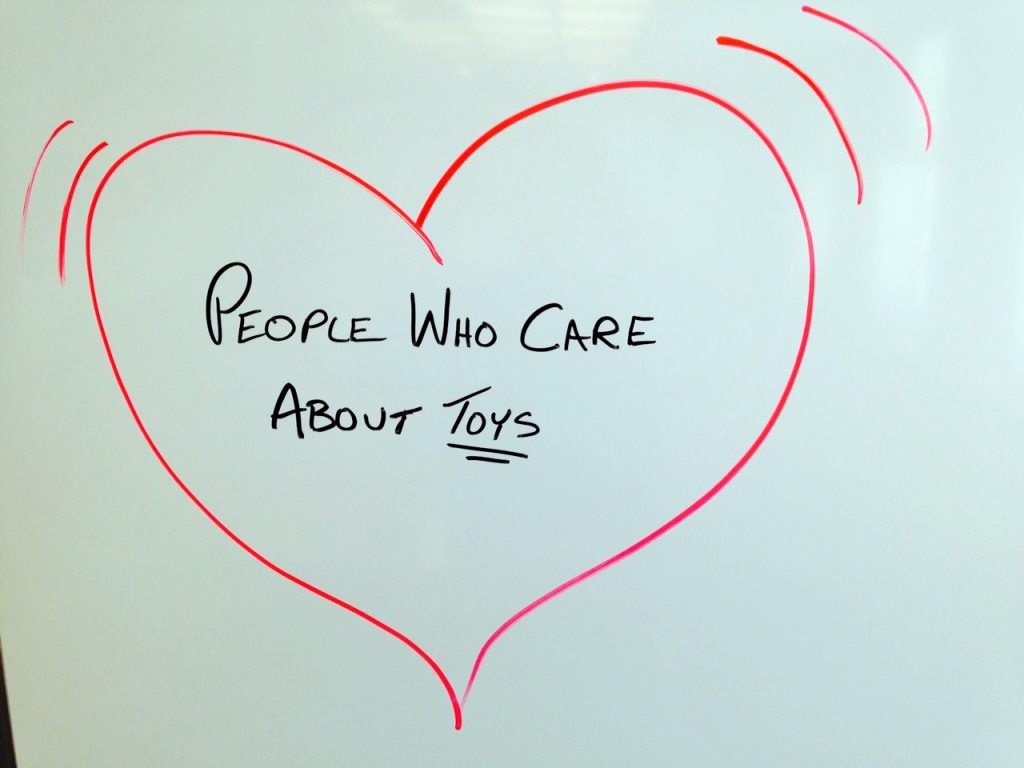 People Who Care
About Toys